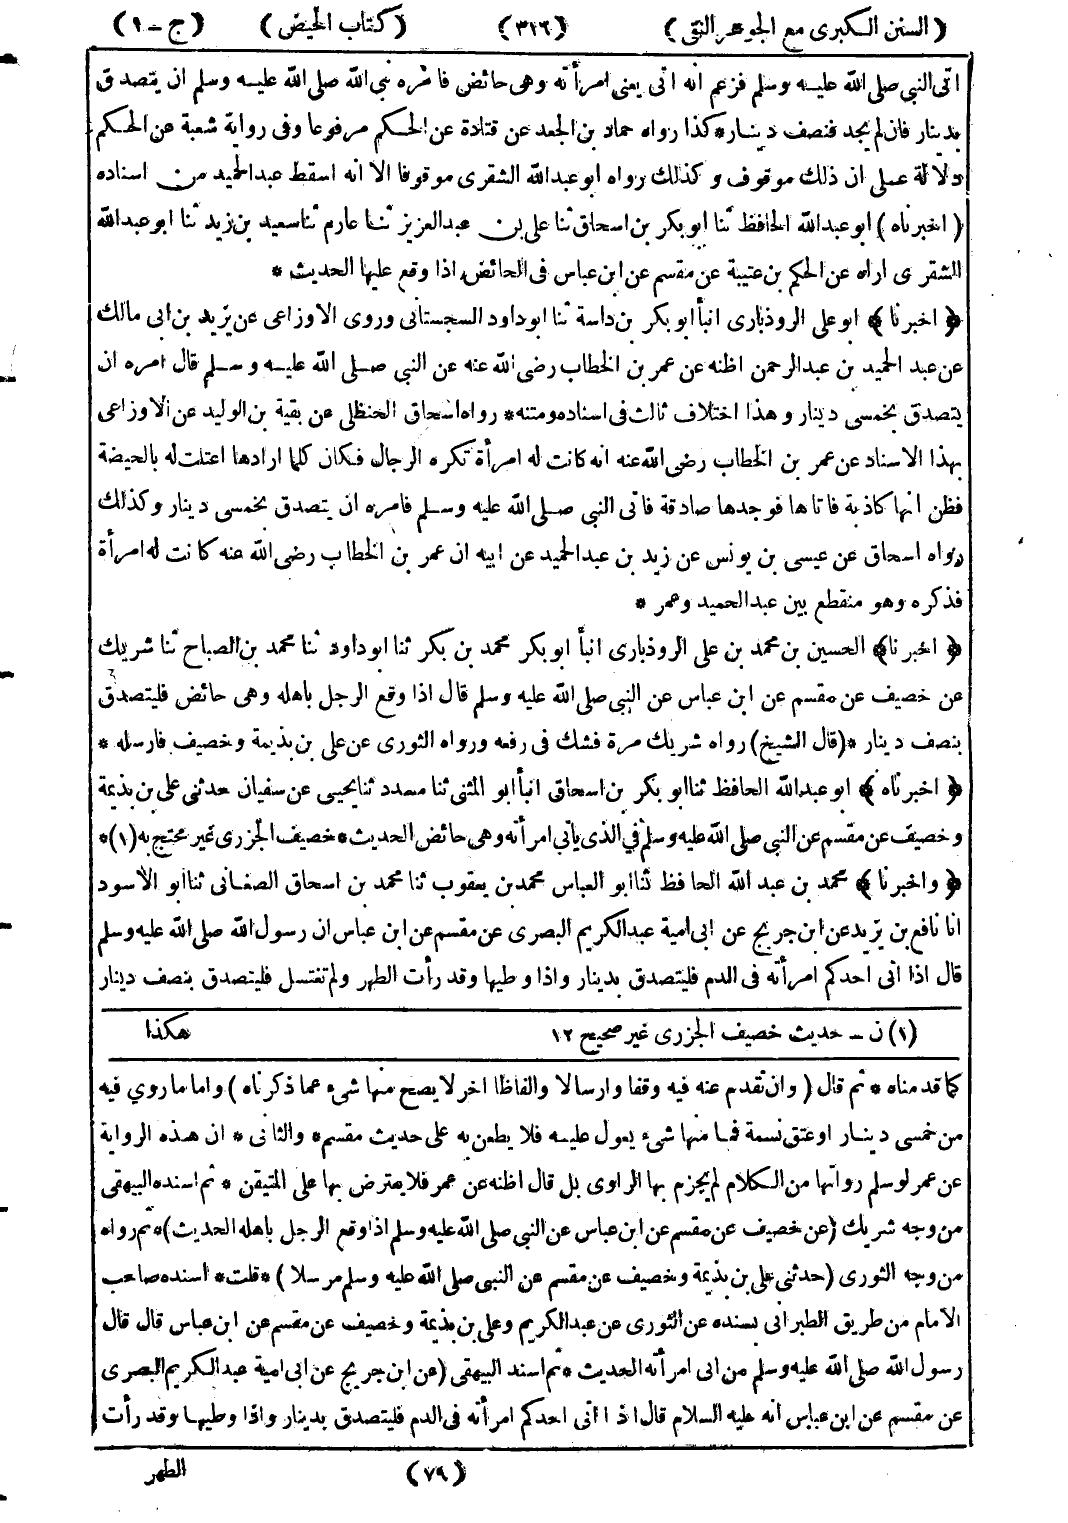 (السنن الكبرى مع الجوهر النقى) (٣١٦) (كتاب الحيض) (ج - ١)
اتى النبى صلى الله عليه وسلم فزعم انه اتى يعنى امرأته وهى حائض فامره نبى الله صلى الله عليه وسلم ان يتصدق
بدينار فان لم يجد فنصف دينار* كذا رواه حماد بن الجعد عن قتادة عن الحكم مرفوعا وفى رواية شعبة عن الحكم
دلالة على ان ذلك موقوف وكذلك رواه ابو عبدالله الشقرى موقوفا الا انه اسقط عبدالحميد من اسناده
(اخبرناه) ابو عبدالله الحافظ ثنا ابو بكر بن اسحاق ثنا على بن عبدالعزيز ثنا عارم ثنا سعيد بن زيد ثنا ابو عبدالله
الشقرى اراه عن الحكم بن عتيبة عن مقسم عن ابن عباس فى الحائض اذا وقع عليها الحديث *
﴿ اخبرنا ﴾ ابو على الروذبارى انبأ ابو بكر بن داسة ثنا ابو داود السجستانى وروى الاوزاعى عن يزيد بن ابى مالك
عن عبد الحميد بن عبدالرحمن اظنه عن عمر بن الخطاب رضى الله عنه عن النبى صلى الله عليه وسلم قال امره ان
يتصدق بخمسى دينار وهذا اختلاف ثالث فى اسناده ومتنه* رواه اسحاق الحنظلى عن بقية بن الوليد عن الاوزاعى
بهذا الاسناد عن عمر بن الخطاب رضى الله عنه انه كانت له امرأة تكره الرجال فكان كلما ارادها اعتلت له بالحيضة
فظن انها كاذبة فاتاها فوجدها صادقة فاتى النبى صلى الله عليه وسلم فامره ان يتصدق بخمسى دينار وكذلك
رواه اسحاق عن عيسى بن يونس عن زيد بن عبدالحميد عن ابيه ان عمر بن الخطاب رضى الله عنه كانت له امرأة
فذكره وهو منقطع بين عبدالحميد وعمر *
﴿ اخبرنا ﴾ الحسين بن محمد بن على الروذبارى انبأ ابو بكر محمد بن بكر ثنا ابو داود ثنا محمد بن الصباح ثنا شريك
عن خصيف عن مقسم عن ابن عباس عن النبى صلى الله عليه وسلم قال اذا وقع الرجل باهله وهى حائض فليتصدق
بنصف دينار *(قال الشيخ) رواه شريك مرة فشك فى رفعه ورواه الثورى عن على بن بذيمة وخصيف فارسله *
﴿ اخبرناه ﴾ ابو عبدالله الحافظ ثنا ابو بكر بن اسحاق انبأ ابو المثنى ثنا مسدد ثنا يحيى عن سفيان حدثنى على بن بذيمة
وخصيف عن مقسم عن النبى صلى الله عليه وسلم في الذى ياتى امرأته وهى حائض الحديث* خصيف الجزرى غير محتج به (١)*
﴿ واخبرنا ﴾ محمد بن عبد الله الحافظ ثنا ابو العباس محمد بن يعقوب ثنا محمد بن اسحاق الصغانى ثنا ابو الاسود
انا نافع بن يزيد عن ابن جريج عن ابى امية عبدالكريم البصرى عن مقسم عن ابن عباس ان رسول الله صلى الله عليه وسلم
قال اذا اتى احدكم امرأته فى الدم فليتصدق بدينار واذا وطيها وقد رأت الطهر ولم تغتسل فليتصدق بنصف دينار
(١) ن - حديث خصيف الجزرى غير صحيح ١٢ هكذا
كما قدمناه * ثم قال (وان تقدم عنه فيه وقفا وارسالا والفاظا اخر لا يصح منها شىء عما ذكرناه) واما ما روي فيه
من خمسى دينار او عتق نسمة فما منها شىء يعول عليه فلا يطعن به على حديث مقسم* والثانى * ان هذه الرواية
عن عمر لو سلم رواتها من الكلام لم يجزم بها الراوى بل قال اظنه عن عمر فلا يعترض بها على المتيقن * ثم اسنده البيهقى
من وجه شريك (عن خصيف عن مقسم عن ابن عباس عن النبى صلى الله عليه وسلم اذا وقع الرجل باهله الحديث)* ثم رواه
من وجه الثورى (حدثنى على بن بذيمة وخصيف عن مقسم عن النبى صلى الله عليه وسلم مرسلا) *قلت* اسنده صاحب
الامام من طريق الطبرانى بسنده عن الثورى عن عبدالكريم وعلى بن بذيمة وخصيف عن مقسم عن ابن عباس قال قال
رسول الله صلى الله عليه وسلم من اتى امرأته الحديث * ثم اسند البيهقى (عن ابن جريج عن ابى امية عبدالكريم البصرى
عن مقسم عن ابن عباس انه عليه السلام قال اذا اتى احدكم امرأته فى الدم فليتصدق بدينار واذا وطيها وقد رأت
(٧٩) الطهر